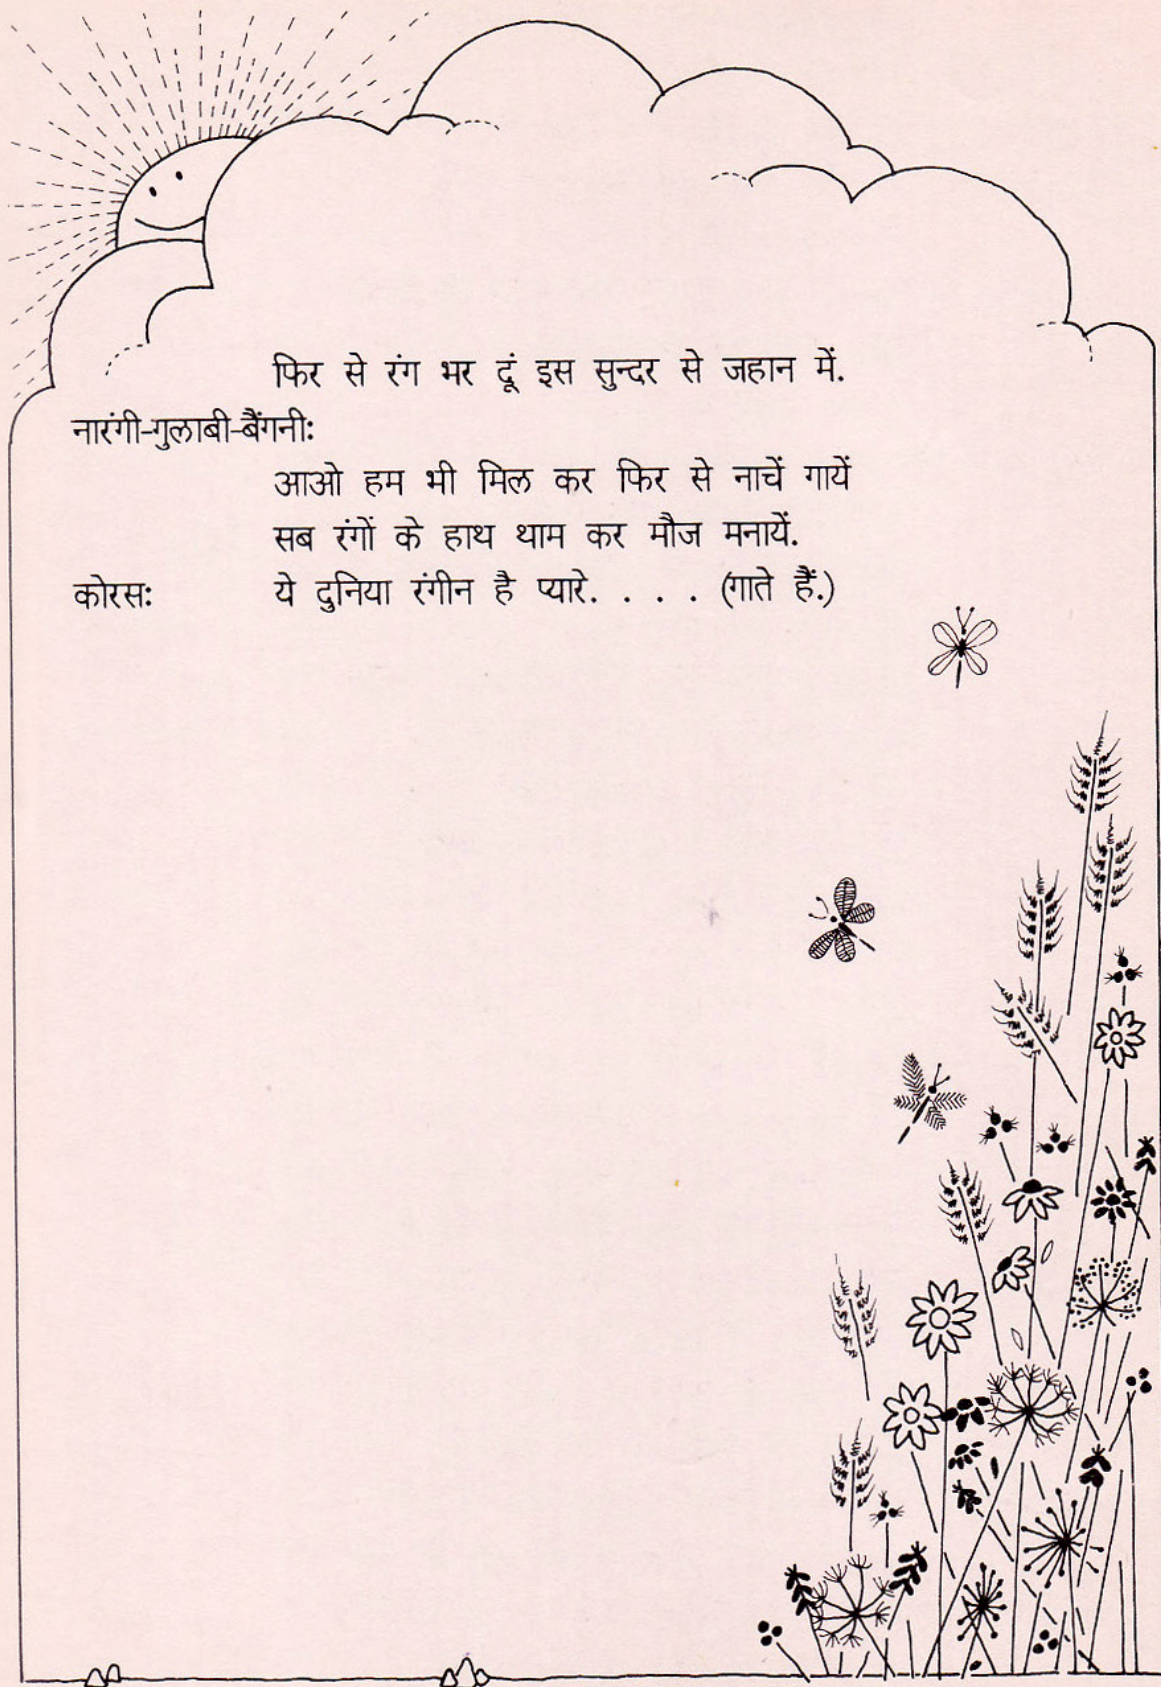 फिर से रंग भर दूं इस सुन्दर से जहान में.
नारंगी-गुलाबी-बैंगनी:
आओ हम भी मिल कर फिर से नाचें गायें
सब रंगों के हाथ थाम कर मौज मनायें.
कोरस: ये दुनिया रंगीन है प्यारे. . . . (गाते हैं.)